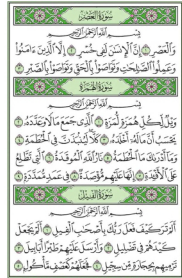 سُورَةُ الْعَصْرِ
بِسْمِ اللَّهِ الرَّحْمَٰنِ الرَّحِيمِ
وَالْعَصْرِ ۝١ إِنَّ الْإِنسَانَ لَفِي خُسْرٍ ۝٢ إِلَّا الَّذِينَ آمَنُوا
وَعَمِلُوا الصَّالِحَاتِ وَتَوَاصَوْا بِالْحَقِّ وَتَوَاصَوْا بِالصَّبْرِ ۝٣
سُورَةُ الْهُمَزَةِ
بِسْمِ اللَّهِ الرَّحْمَٰنِ الرَّحِيمِ
وَيْلٌ لِّكُلِّ هُمَزَةٍ لُّمَزَةٍ ۝١ الَّذِي جَمَعَ مَالًا وَعَدَّدَهُ ۝٢
يَحْسَبُ أَنَّ مَالَهُ أَخْلَدَهُ ۝٣ كَلَّا لَيُنبَذَنَّ فِي الْحُطَمَةِ ۝٤
وَمَا أَدْرَاكَ مَا الْحُطَمَةُ ۝٥ نَارُ اللَّهِ الْمُوقَدَةُ ۝٦ الَّتِي تَطَّلِعُ
عَلَى الْأَفْئِدَةِ ۝٧ إِنَّهَا عَلَيْهِم مُّؤْصَدَةٌ ۝٨ فِي عَمَدٍ مُّمَدَّدَةٍ ۝٩
سُورَةُ الْفِيلِ
بِسْمِ اللَّهِ الرَّحْمَٰنِ الرَّحِيمِ
أَلَمْ تَرَ كَيْفَ فَعَلَ رَبُّكَ بِأَصْحَابِ الْفِيلِ ۝١ أَلَمْ يَجْعَلْ
كَيْدَهُمْ فِي تَضْلِيلٍ ۝٢ وَأَرْسَلَ عَلَيْهِمْ طَيْرًا أَبَابِيلَ ۝٣
تَرْمِيهِم بِحِجَارَةٍ مِّن سِجِّيلٍ ۝٤ فَجَعَلَهُمْ كَعَصْفٍ مَّأْكُولٍ ۝٥